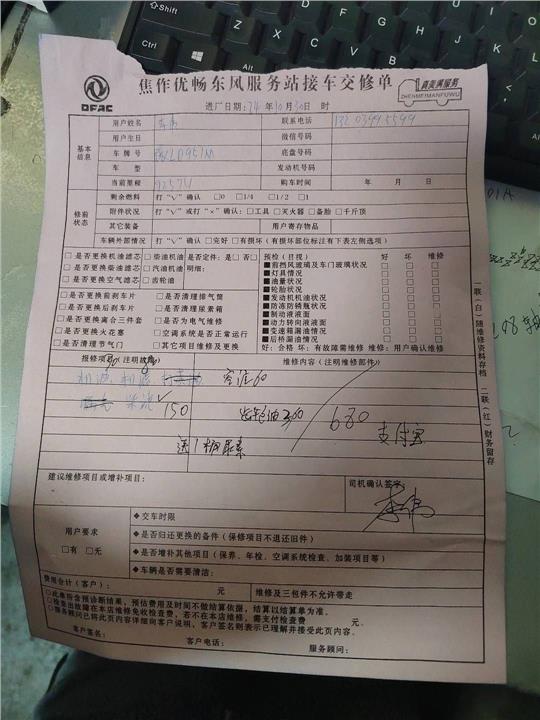 Shift
Ctrl
Alt
焦作优畅东风服务站接车交修单
DFAC
真美满服务
ZHENMEIMANFUWU
进厂日期:24 年 10 月 30 日 时
基本信息
用户姓名 李伟 联系电话
用户生日 微信号码
车牌号 底盘号码
车型 发动机号码
当前里程 购车时间 年 月 日
修前状态
剩余燃料 打“V”确认 □0 □1/4 □1/2 □1
附件状况 打“V”或打“×”确认:□工具 □灭火器 □备胎 □千斤顶
其它装备 用户寄存物品
车辆外部情况 打“V”确认 □完好 □有损坏(有损坏部位标注有下表左侧选项)
□是否更换机油滤芯 □柴油机油 是否定件:是□否□
□是否更换柴油滤芯 □汽油机油 明细:
□是否更换空气滤芯 □齿轮油
□是否更换前刹车片 □是否清理排气筒
□是否更换后刹车片 □是否清理尿素箱
□是否更换离合三件套 □是否为电气维修
□是否更换火花塞 □空调系统是否正常运行
□是否清理节气门 □其它项目维修及更换
预检(目视) 好 坏 维修
■前挡风玻璃及车门玻璃状况 □ □ □
■灯具情况 □ □ □
■油量状况 □ □ □
■轮胎状况 □ □ □
■发动机机油状况 □ □ □
■防冻防锈瓶状况 □ □ □
■制动液液面 □ □ □
■动力转向液液面 □ □ □
■变速箱漏油情况 □ □ □
■后桥漏油情况 □ □ □
好:合格 坏:有故障需维修 维修:用户确认维修
报修项目(注明故障) 维修内容(注明维修部件)
机油 机滤
柴滤 150
680
支付宝
送1桶尿素
建议维修项目或增补项目:
司机确认签字:
李伟
用户要求
□有 □无
◆交车时限
◆是否归还更换的备件(保修项目不退还旧件)
◆是否增补其他项目(保养、年检、空调系统检查、加装项目等)
◆车辆是否需要清洁:
费用合计(客户): 元 维修及三包件不允许带走
○此单价含预诊断结果,预估费用及时间不做结算依据,结算以结算单为准。
○检查出故障在本店维修免收检查费,若不在本店维修,需支付检查费 元。
○服务顾问已将此页内容详细向客户说明,客户签名则表示已理解并接受此页内容。
客户签名: 客户电话: 服务顾问:
一联(白)随维修资料存档
二联(红)财务留存